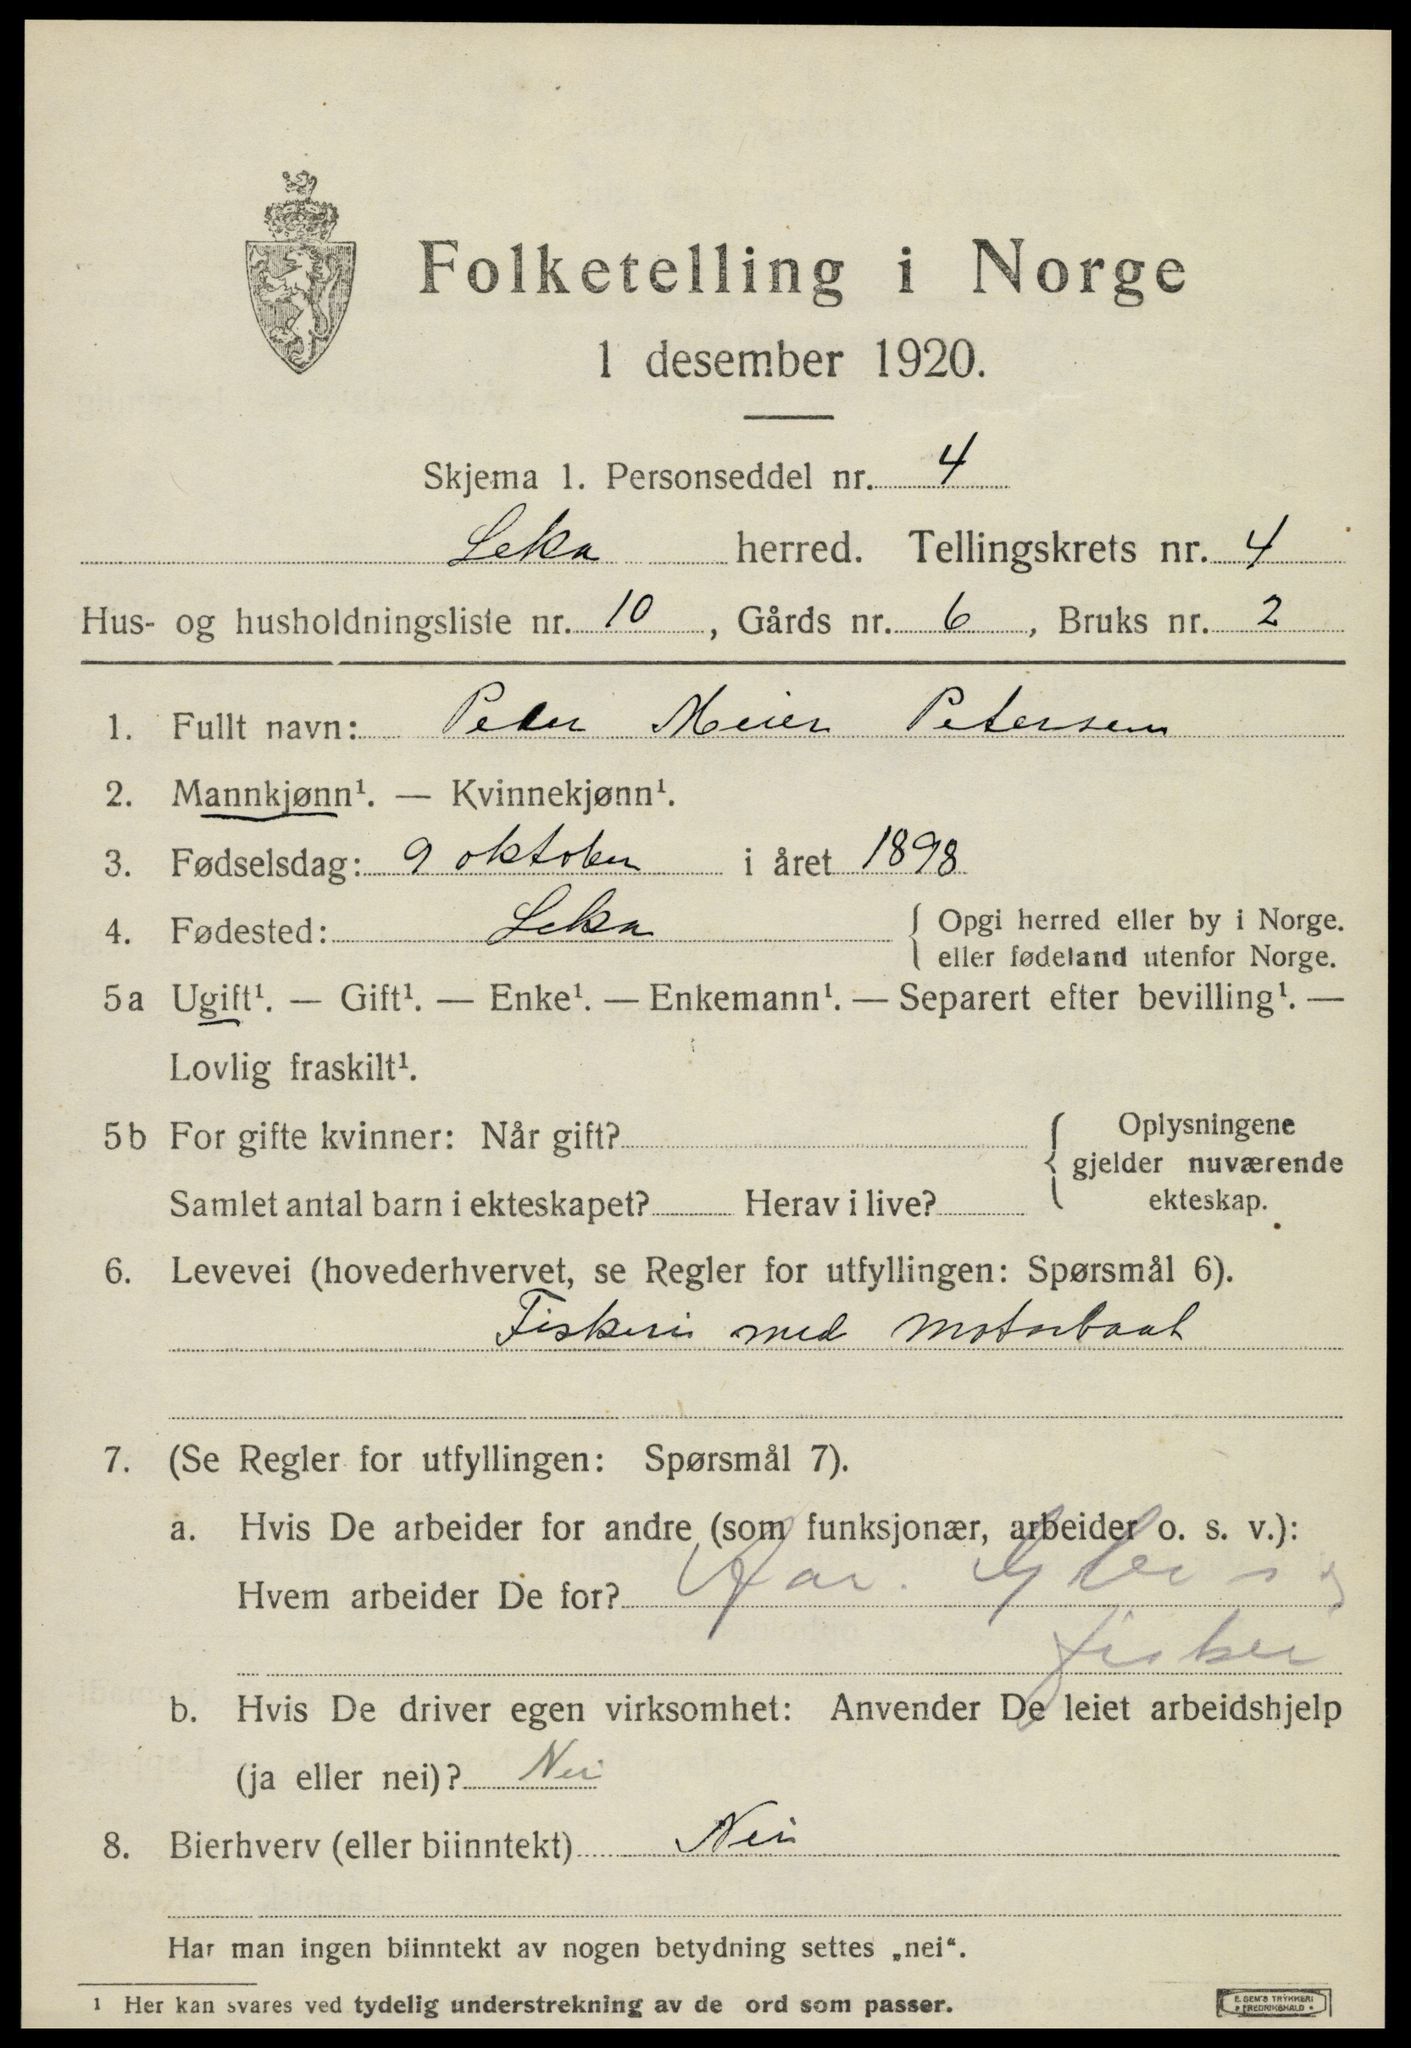 Folketelling i Norge
1 desember 1920.
Skjema 1. Personseddel nr. 4
Leka herred. Tellingskrets nr. 4
Hus- og husholdningsliste nr. 10, Gårds nr. 6, Bruks nr. 2
1. Fullt navn: Peder Meier Petersen
2. Mannkjønn¹. — Kvinnekjønn¹.
3. Fødselsdag: 9 oktober i året 1898
4. Fødested: Leka { Opgi herred eller by i Norge.
eller fødeland utenfor Norge.
5a Ugift¹. — Gift¹. — Enke¹. — Enkemann¹. — Separert efter bevilling¹. —
Lovlig fraskilt¹.
5b For gifte kvinner: Når gift? { Oplysningene
gjelder nuværende
Samlet antal barn i ekteskapet? Herav i live? ekteskap.
6. Levevei (hovederhvervet, se Regler for utfyllingen: Spørsmål 6).
Fiskeri med motorbaat
7. (Se Regler for utfyllingen: Spørsmål 7).
a. Hvis De arbeider for andre (som funksjonær, arbeider o. s. v.):
Hvem arbeider De for?
fisker
b. Hvis De driver egen virksomhet: Anvender De leiet arbeidshjelp
(ja eller nei)? Nei
8. Bierhverv (eller biinntekt) Nei
Har man ingen biinntekt av nogen betydning settes „nei“.
¹ Her kan svares ved tydelig understrekning av de ord som passer.
E. SEM'S TRYKKERI
FREDRIKSHALD